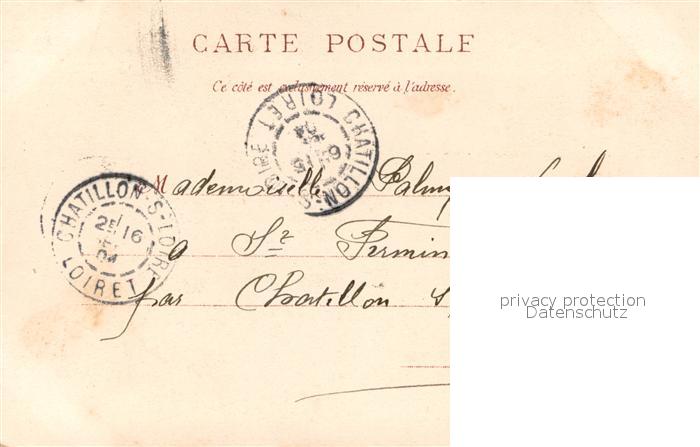 CARTE POSTALE
Ce côté est exclusivement réservé à l'adresse.
CHATILLON-S-LOIRE LOIRET
CHATILLON-S-LOIRE
25 16
04
LOIRET
M Mademoiselle
à St Firmin
par Chatillon s/
privacy protection
Datenschutz